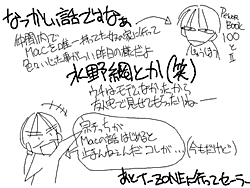 なつかしい話ではなぁ
仲間内で
Macを唯一持ってた女の家に行って
色々いじった事がいい昨日の様だよ
Power
Book
100
と
II
水野綱とか(笑)
ウチはモデムなかったから
友人宅で見せてもらったね―
Macの話はじめると
止まんねェんだコレが…
(今もだけど)
あとT-ZONE行ってセーラー